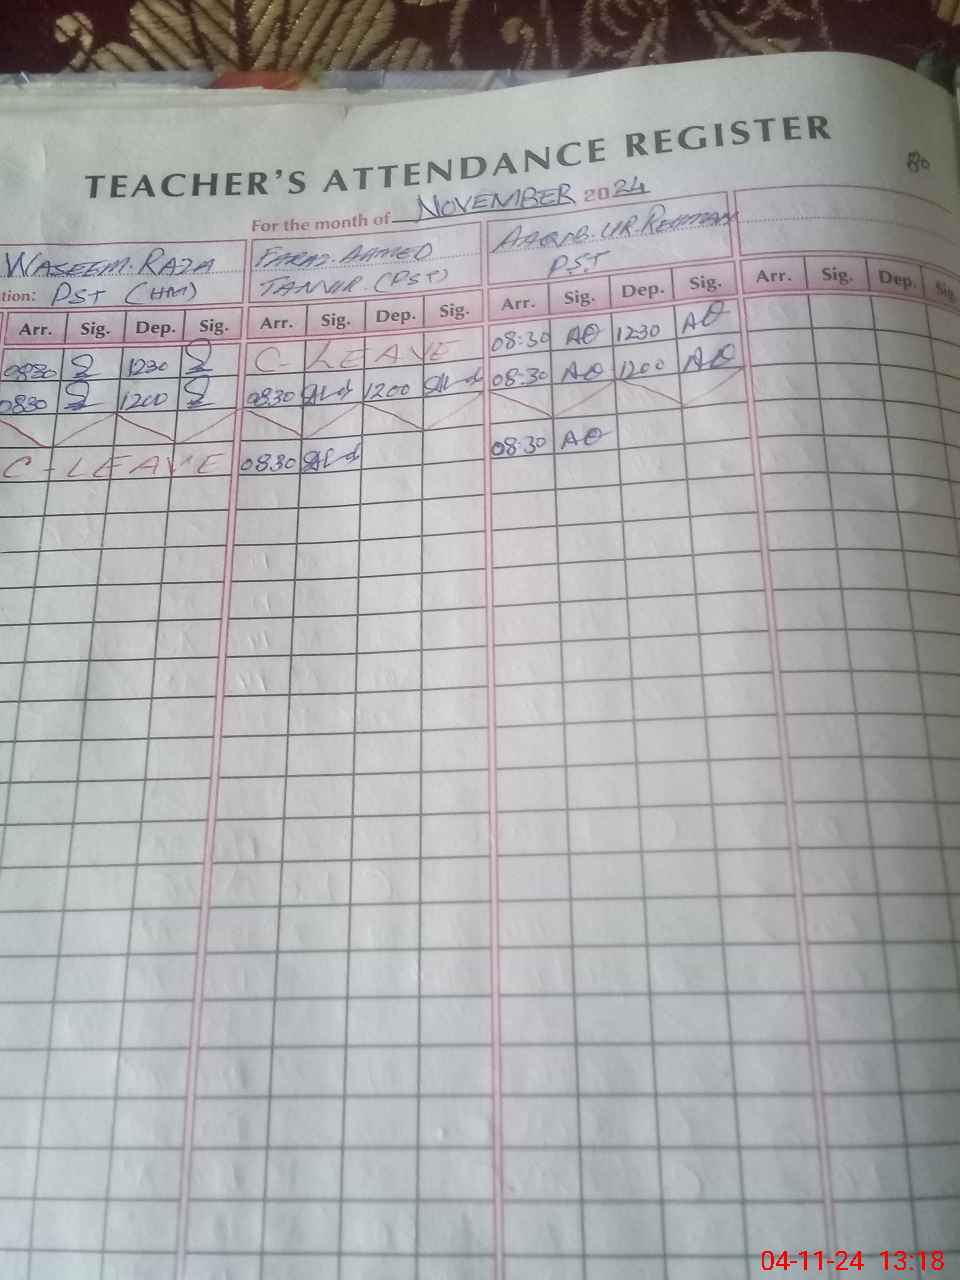 80
TEACHER'S ATTENDANCE REGISTER
For the month of NOVEMBER 2024
WASEEM. RAZA
tion: PST (HM)
FARAZ. AHMED
TANVIR. (PST)
AAQIB. UR. REHMAN
PST
Arr. Sig. Dep. Sig. Arr. Sig. Dep. Sig. Arr. Sig. Dep. Sig. Arr. Sig. Dep. Sig.
0830 1230 C- LEAVE 08:30 1230
0830 1200 0830 1200 08:30 1200
C - LEAVE 0830 08:30
04-11-24 13:18